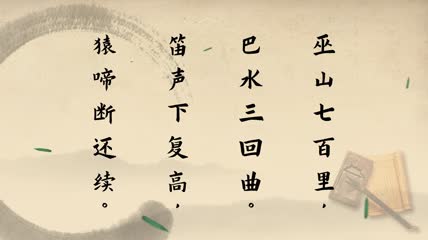 巫山七百里，
巴水三回曲。
笛声下复高，
猿啼断还续。